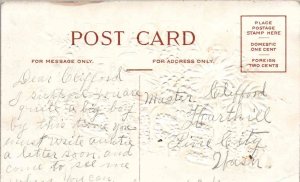 POST CARD
PLACE
POSTAGE
STAMP HERE
DOMESTIC
ONE CENT
FOREIGN
TWO CENTS
FOR MESSAGE ONLY.
FOR ADDRESS ONLY.
Dear Clifford
I suppose you are
quite a big boy
by this time you
must write auntie
a letter soon, and
come to see me
when you can
Master Clifford
Hartnill
Pine City
Wash